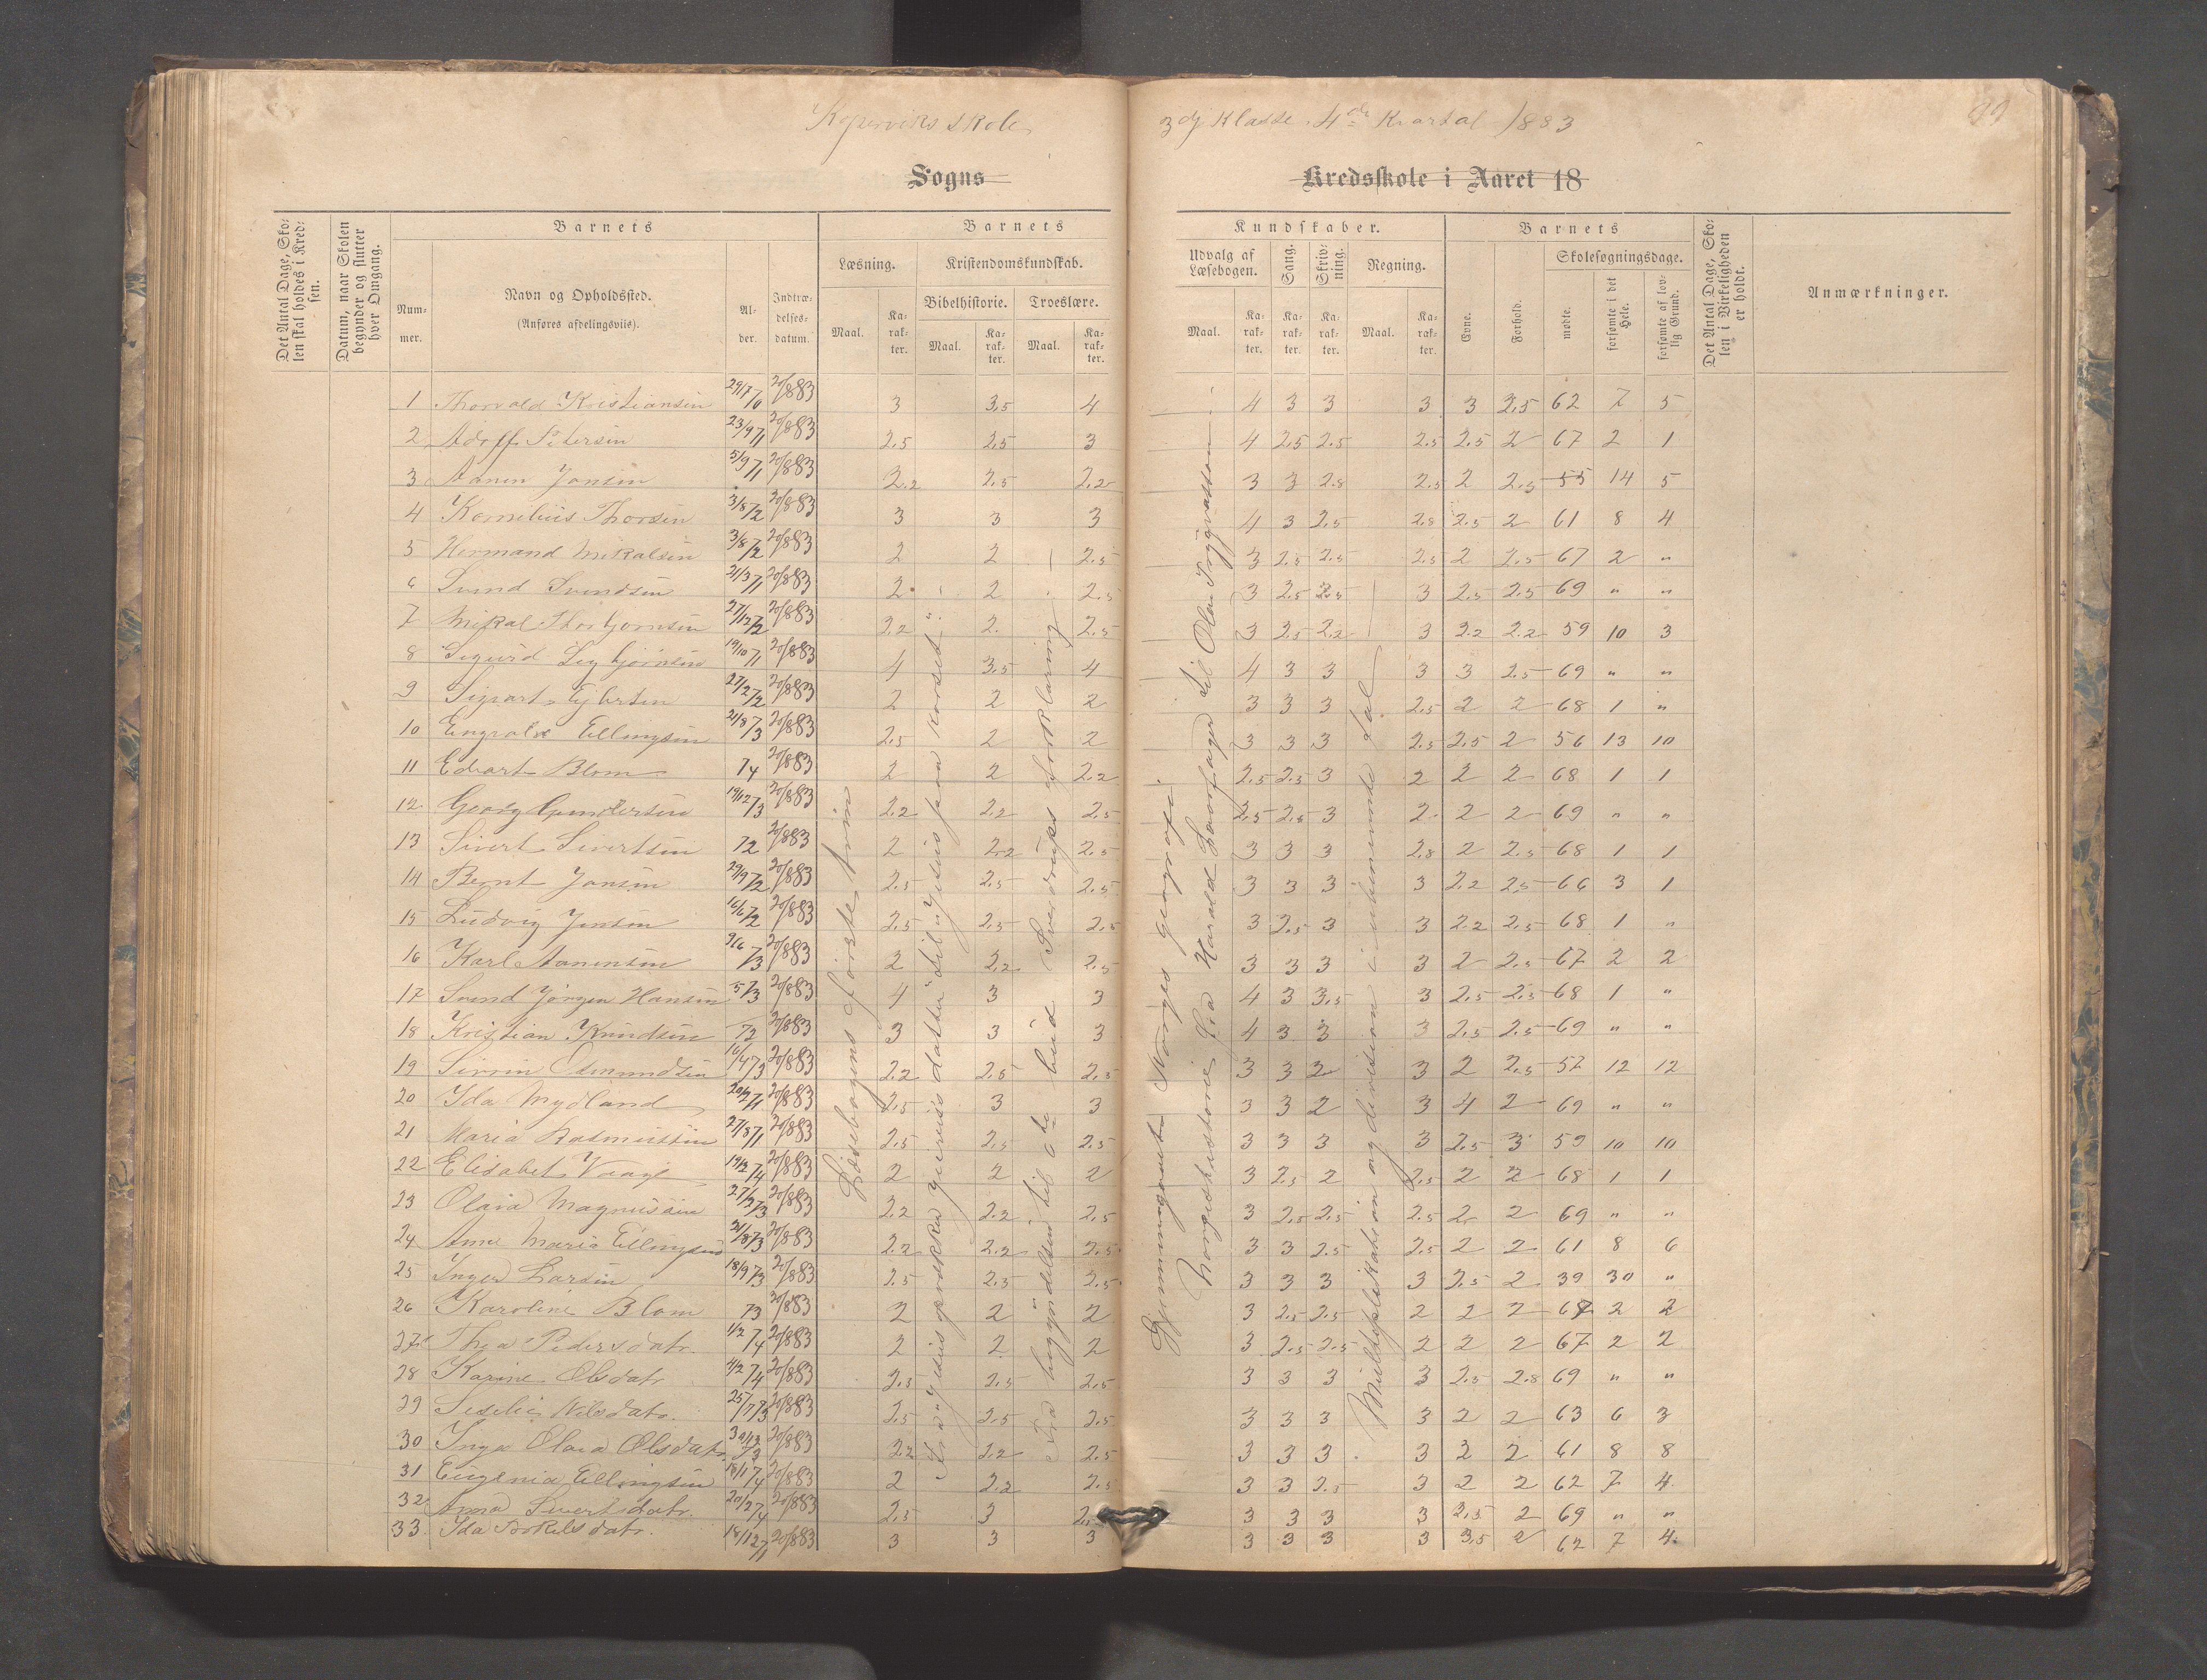 Koperviks skole,
3dj Klasse. 4de Kvartal 1883
99
Sogns
Kredsskole i Aaret 18
Det Antal Dage, Sko-
len skal holdes i Kred-
sen.
Datum, naar Skolen
begynder og slutter
hver Omgang.
Barnets
Num-
mer.
Navn og Opholdssted.
(Anføres afdelingsviis).
Al-
der.
Indtræ-
delses-
datum.
Barnets
Læsning.
Kristendomskundskab.
Bibelhistorie.
Troeslære.
Maal.
Ka-
rak-
ter.
Maal.
Ka-
rak-
ter.
Maal.
Ka-
rak-
ter.
Kundskaber.
Udvalg af
Læsebogen.
Sang.
Skriv-
ning.
Regning.
Maal.
Ka-
rak-
ter.
Ka-
rak-
ter.
Ka-
rak-
ter.
Maal.
Ka-
rak-
ter.
Barnets
Evne.
Forhold.
Skolesøgningsdage.
mødte.
forsømte i det
Hele.
forsømte af lov-
lig Grund.
Det Antal Dage, Sko-
len i Virkeligheden
er holdt.
Anmærkninger.
1 Thorvald Kristiansen 29/7 70 20/8 83 3 3,5 4 4 3 3 3 3 2,5 62 7 5
2 Adolf Petersen 23/9 71 20/8 83 2.5 2,5 3 4 2,5 2.5 2.5 2.5 2 67 2 1
3 Aanen Jonsen 5/9 71 20/8 83 2.2 2.5 2.2 3 3 2.8 2.5 2 2.5 55 14 5
4 Kornelius Thorsen 3/8 72 20/8 83 3 3 3 4 3 2.5 2.8 2.5 2 61 8 4
5 Hermand Mikalsen 3/8 72 20/8 83 2 2 2.5 3 2.5 2.5 2.5 2 2.5 67 2 "
6 Svend Svendsen 21/3 71 20/8 83 2 2 2.5 3 2.5 2.5 3 2.5 2.5 69 " "
7 Mikal Thorbjornsen 27/12 72 20/8 83 2.2 2 2.5 3 2.5 2.2 3 2.2 2.2 59 10 3
8 Sigurd Sigbjørnsen 19/10 71 20/8 83 4 3,5 4 4 3 3 3 3 2.5 69 " "
9 Sigvart Ejertsen 27/2 72 20/8 83 2 2 2 3 3 3 2.5 2 2 68 1 "
10 Engvald Ellingsen 21/8 73 20/8 83 2.5 2 2 3 3 3 2.5 2.5 2 56 13 10
11 Edvart Blom 74 20/8 83 2 2 2.2 2.5 2.5 3 2 2 2 68 1 1
12 Georg Gundersen 19/12 73 20/8 83 2.2 2.2 2.5 2.5 2.5 3 2 2 2 69 " "
13 Sivert Sivertsen 72 20/8 83 2 2.2 2.5 3 3 3 2.8 2 2.5 68 1 1
14 Bernt Jonsen 29/9 72 20/8 83 2.5 2.5 2.5 3 3 3 3 2.2 2.5 66 3 1
15 Ludvig Jensen 16/6 72 20/8 83 2.5 2.5 2.5 3 2.5 3 3 2.2 2.5 68 1 "
16 Karl Aanensen 9/6 73 20/8 83 2 2.2 2.5 3 3 3 3 2 2.5 67 2 2
17 Svend Jørgen Hansen 5/73 20/8 83 4 3 3 4 3 3,5 3 2.5 2.5 68 1 "
18 Kristian Knudsen 72 20/8 83 3 3 3 4 3 3 3 2.5 2.5 69 " "
19 Sivrin Osmundsen 16/4 73 20/8 83 2.2 2.5 2.5 3 3 2 3 2 2.5 57 12 12
20 Ida Mydland 20/2 71 20/8 83 2.5 3 3 3 3 2 3 4 2 69 " "
21 Maria Rasmussen 27/8 71 20/8 83 2.5 2.5 2.5 3 3 3 3 2.5 3 59 10 10
22 Elisabet Vaage 19/2 74 20/8 83 2 2 2 3 2.5 2 2.5 2 2 68 1 1
23 Olava Magnussen 27/2 73 20/8 83 2.2 2.2 2.5 3 2.5 2.5 2.5 2 2 69 " "
24 Anne Maria Ellingsen 21/8 73 20/8 83 2.2 2.2 2.5 3 3 2.5 2.5 2 2 61 8 6
25 Inger Larsen 18/9 73 20/8 83 2.5 2.5 2.5 3 3 3 3 2.5 2 39 30 "
26 Karoline Blom 73 20/8 83 2 2 2 3 2.5 2.5 2 2 2 67 2 2
27 Thea Pedersdatr. 1/2 74 20/8 83 2 2 2 3 2.5 2.5 2 2 2 67 2 2
28 Karine Olsdatr 4/2 74 20/8 83 2.5 2.5 2.5 3 3 3 3 2.5 2.8 69 " "
29 Seselie Nilsdatr. 25/7 73 20/8 83 2.5 2.5 2.5 3 3 3 3 2 2 63 6 3
30 Inga Olava Olsdatr. 30/12 73 20/8 83 2.2 2.2 2.5 3 3 3 3 2 2 61 8 8
31 Eugenia Ellingsen 18/1 74 20/8 83 2 2.2 2.5 3 3 2.5 3 2 2 62 7 4
32 Anna Sivertsdatr. 20/2 74 20/8 83 2.5 3 2.5 3 3 3 3 2.5 2 69 " "
33. Ida Torkelsdatr. 18/12 71 20/8 83 3 3 3 3 3 3 3 3,5 2 62 7 4.
Læsebogens første trin
Fra "Jesus opvækker Jairus's datter" til "Jesus paa korset".
Fra begyndelsen til 6te bud Sverdrups forklaring
Gjennemgaaet Norges geografi.
Norgeshistorie fra Harald Haarfager til Olav Trygvasson
Multiplikation og division i ubenævnte tal